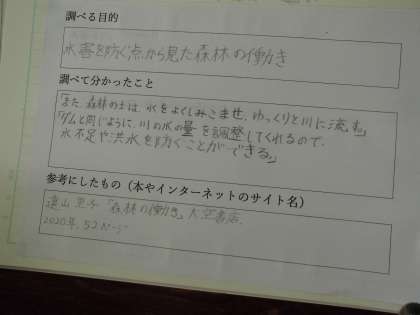 調べる目的
水害を防ぐ点から見た森林の働き
調べて分かったこと
「また、森林の土は、水をよくしみこませ、ゆっくりと川に流す。」
「ダムと同じように、川の水の量を調整してくれるので、
水不足や洪水を防ぐことができる。」
参考にしたもの（本やインターネットのサイト名）
遠山 「森林の働き」大空書店、
2020年、52ページ